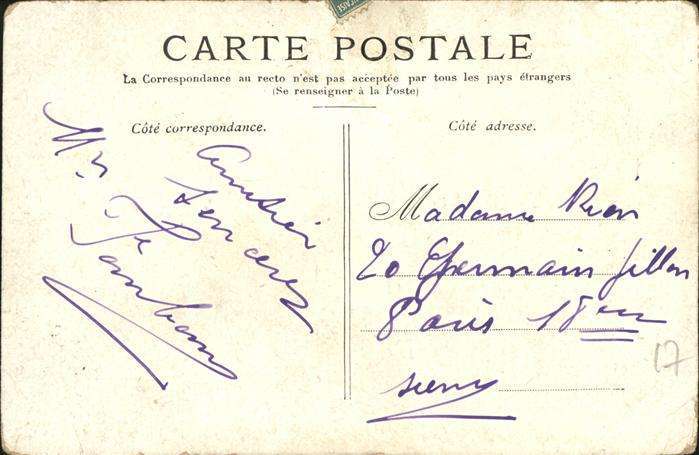 CARTE POSTALE
La Correspondance au recto n'est pas acceptée par tous les pays étrangers
(Se renseigner à la Poste)
Côté correspondance.
Amitiés
sincères
Mr
Côté adresse.
Madame
20 Germain
Paris 18eme
17